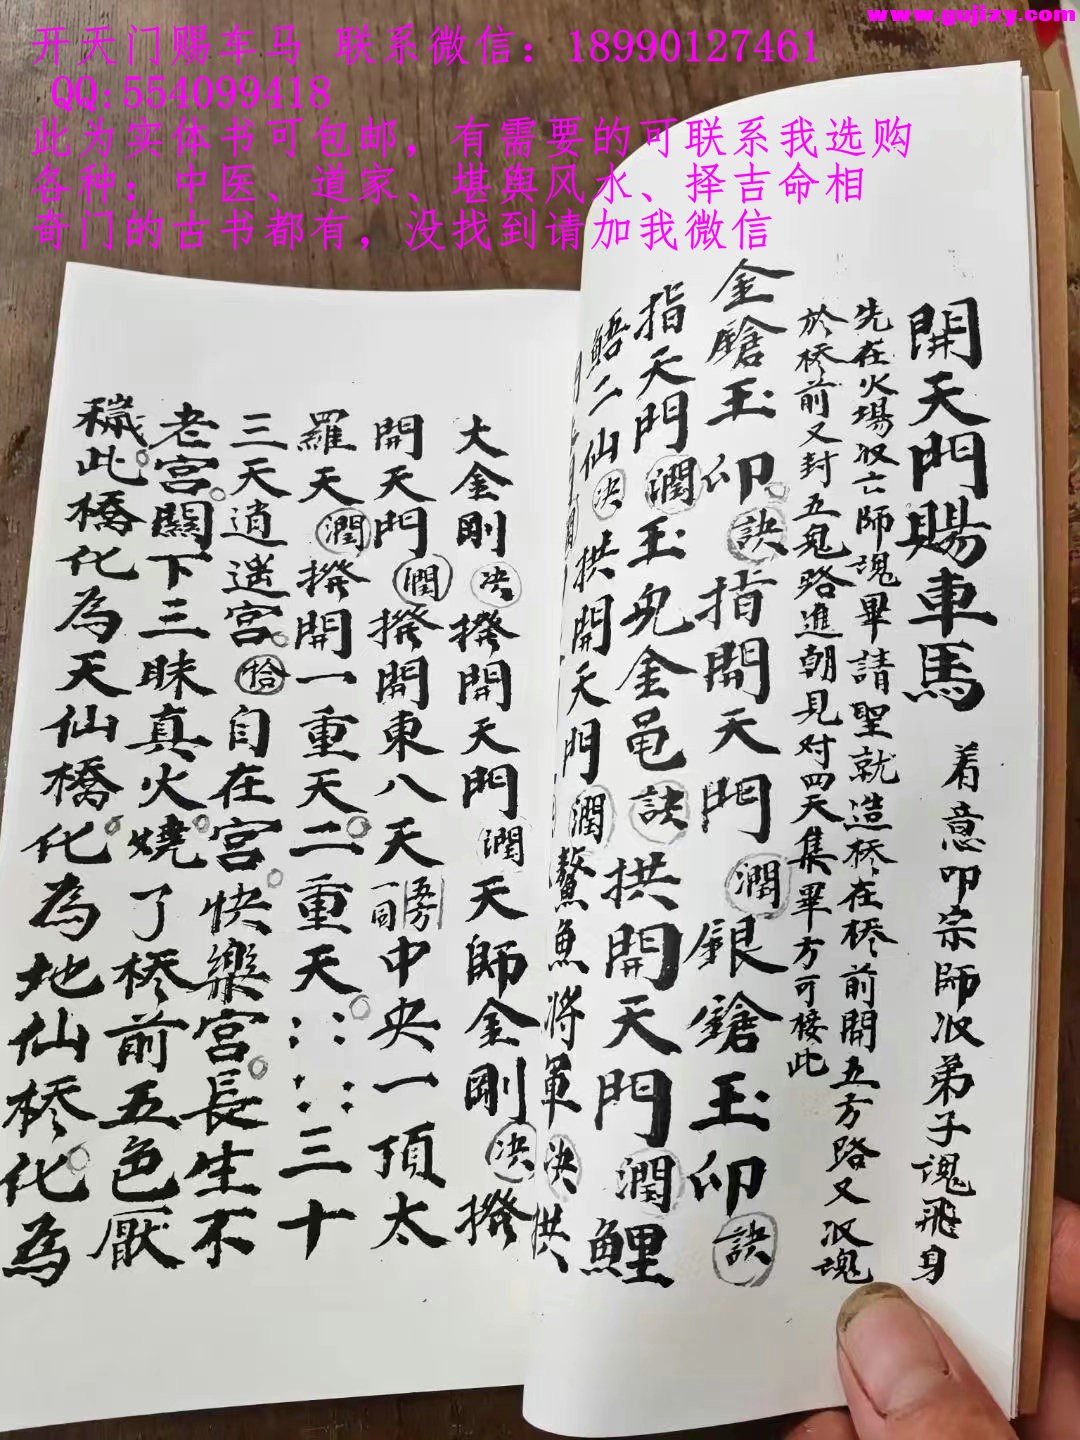 www.gujizy.com
开天门赐车马 联系微信：18990127461
QQ:554099418
此为实体书可包邮，有需要的可联系我选购
各种：中医、道家、堪舆风水、择吉命相
奇门的古书都有，没找到请加我微信
開天門賜車馬 着意叩宗師收弟子魂飛身
先在火場收亡師魂畢請聖就造桥在桥前開五方路又收魂
於桥前又封五鬼路進朝見対四天集畢方可接此
金鎗玉印訣指開天門潤銀鎗玉印訣
指天門潤玉兔金黽訣拱開天門潤鯉
鯃二仙决拱開天門潤鰲魚將軍决拱
大金剛决撥開天門潤天師金剛决撥
開天門潤撥開東八天一同中央一頂太
羅天潤撥開一重天二重天三十
三天逍遥宫恰自在宫快樂宫長生不
老宫闗下三昧真火燒了桥前五色厭
穢此橋化為天仙橋化為地仙桥化為